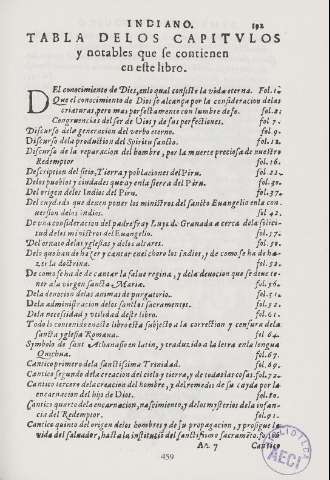 INDIANO. 192
TABLA DELOS CAPITVLOS
y notables que se contienen
en este libro.
DEl conocimiento De Dios, enlo qual consiste la vida eterna. Fol. 1.
Que el conocimiento de Dios se alcança por la consideracion delas
criaturas, pero mas perfectamente con lumbre defe. fol. 2.
Congruencias del ser de Dios y de sus perfectiones. fo 7.
Discurso dela generacion del verbo eterno. fol 9.
Discurso dela produccion del Spiritu sancto. fol. 12.
Discurso de la reparacion del hombre, por la muerte preciosa de nuestro
Redemptor fol. 16.
Descripcion del sitio, Tierra y poblaciones del Piru. fol 21.
Delos pueblos y ciudades que ay enla sierra del Piru. fol 30.
Del origen delos Indios del Piru. fol. 37.
Del cuydado que deuen poner los ministros del sancto Euangelio enla con
uersion delos indios. fol 42.
De vna consideracion del padre fray Luys d. Granada a cerca dela felici-
dad delos ministros del Euangelio. fol. 47.
Del ornato delas yglesias y delos altares. fol. 50.
Delo que han de hazer y cantar enel choro los indios, y de como se ha de ha-
zer la doctrina. fol. 52.
De como se ha de de cantar la salue regina, y dela deuocion que se deue te-
ner ala virgen sancta Maria. fol. 56.
Dela deuocion delas animas de purgatorio. fol. 51.
Dela administracion delos sanctos sacramentos. fol. 52.
Dela necessidad y vtilidad deste libro. fol. 61.
Todo lo contenido eneste libro está subjecto a la correction y censura dela
sancta yglesia Romana. fol 64.
Symbolo de sant Athanasio en latin, y traduzido a la letra enla lengua
Quichua. fol. 67.
Cantico primero dela sanctissima Trinidad. fol. 69.
Cantico segundo dela creacion del cielo y tierra, y de todas las cosas. fol. 72.
Cantico tercero dela creacion del hombre, y del remedio de su cayda por la
encarnacion del hijo de Dios. fol. 80.
Cantico quarto dela encarnacion, nascimiento, y delos mysterios dela infan-
cia del Redemptor. fol. 91.
Cantico quinto del origen delos hombres y de su propagacion, y prosigue la
vida del saluador, hasta la institucion del sanctissimo sacramẽto.
Aa 7 Cantico
459
AECI